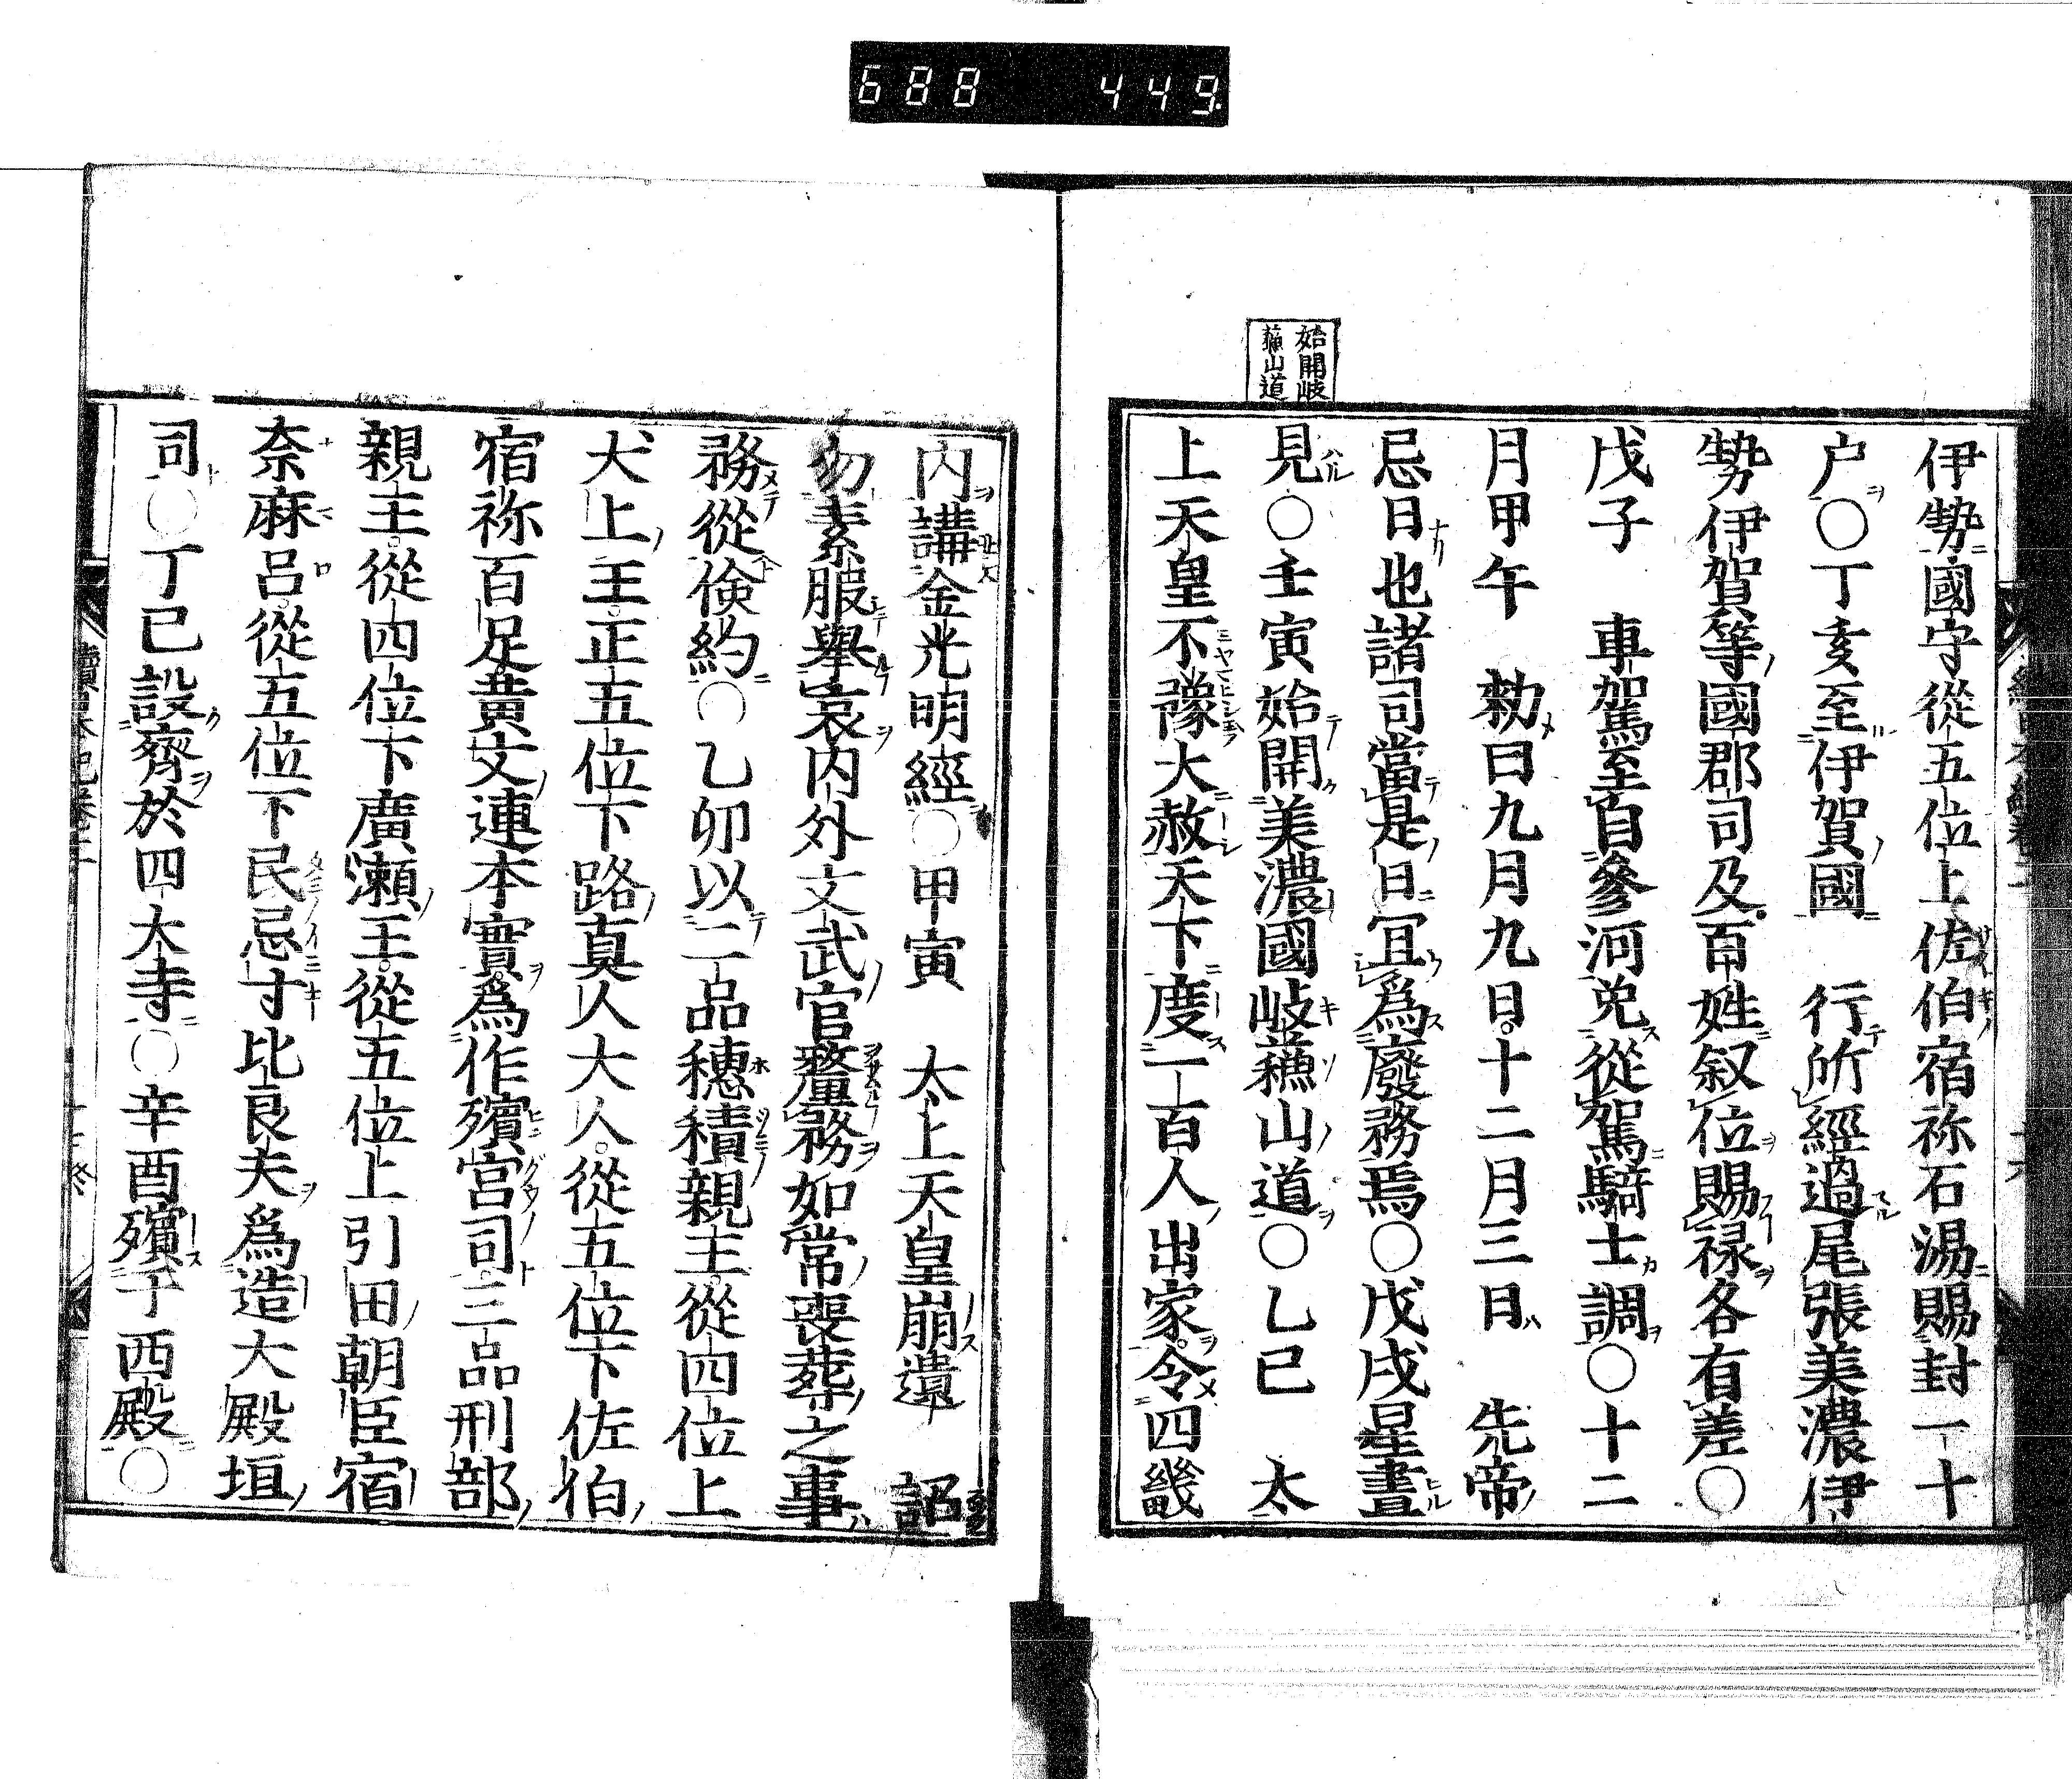 688 449.
始開岐
蘓山道
伊勢國守從五位上佐伯宿祢石湯賜封一十
户○丁亥至伊賀國 行所經過尾張美濃伊
勢伊賀等國郡司及百姓叙位賜禄各有差○
戊子 車駕至自參河免從駕騎士調○十二
月甲午 勑曰九月九日十二月三日 先帝
忌日也諸司當是日冝爲廢務焉○戊戌星晝
見○壬寅始開美濃國岐蘓山道○乙巳 太
上天皇不豫大赦天下度一百人出家令四畿
内講金光明經○甲寅 太上天皇崩遺 詔
勿素服舉哀内外文武官釐務如常喪葬之事
務從儉約○乙卯以二品穗積親王從四位上
犬上王正五位下路真人大人從五位下佐伯
宿祢百足黄文連本實爲作殯宮司三品刑部
親王從四位下廣瀬王從五位上引田朝臣宿
奈麻呂從五位下民忌寸比良夫爲造大殿垣
司○丁巳設齊於四大寺○辛酉殯于西殿○